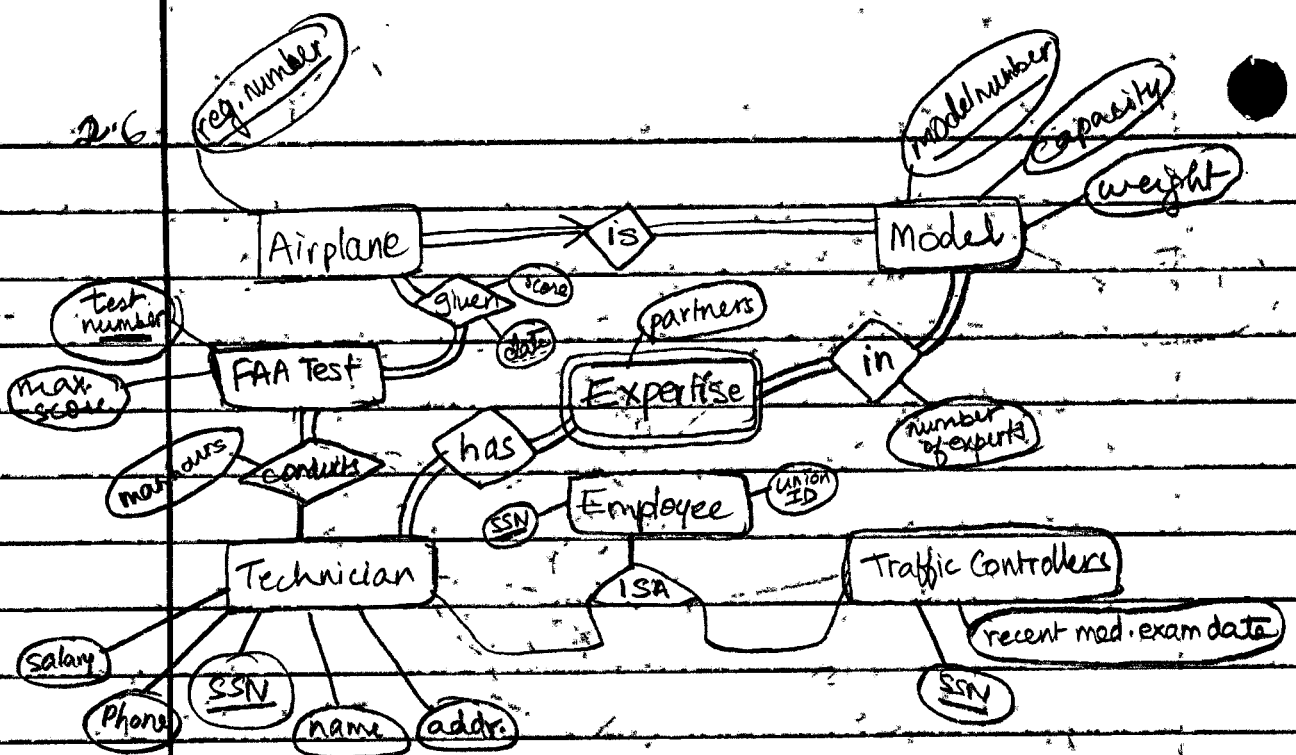 2.6
reg. number
model number
capacity
weight
Airplane
is
Model
given
score
date
test
number
max.
score
FAA Test
partners
Expertise
in
number
of experts
man hours
conducts
has
SSN
Employee
union
ID
Technician
ISA
Traffic Controllers
recent med. exam date
salary
Phone
SSN
name
addr.
SSN